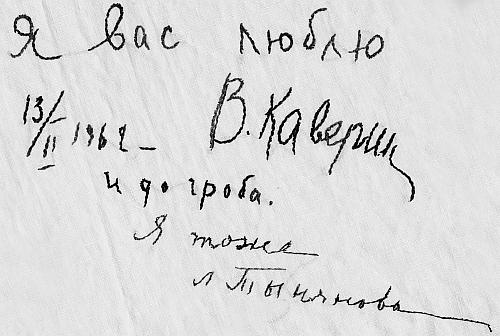 Я вас люблю
В. Каверин
13/II 1962 –
и до гроба.
Я тоже
Л Тынянова